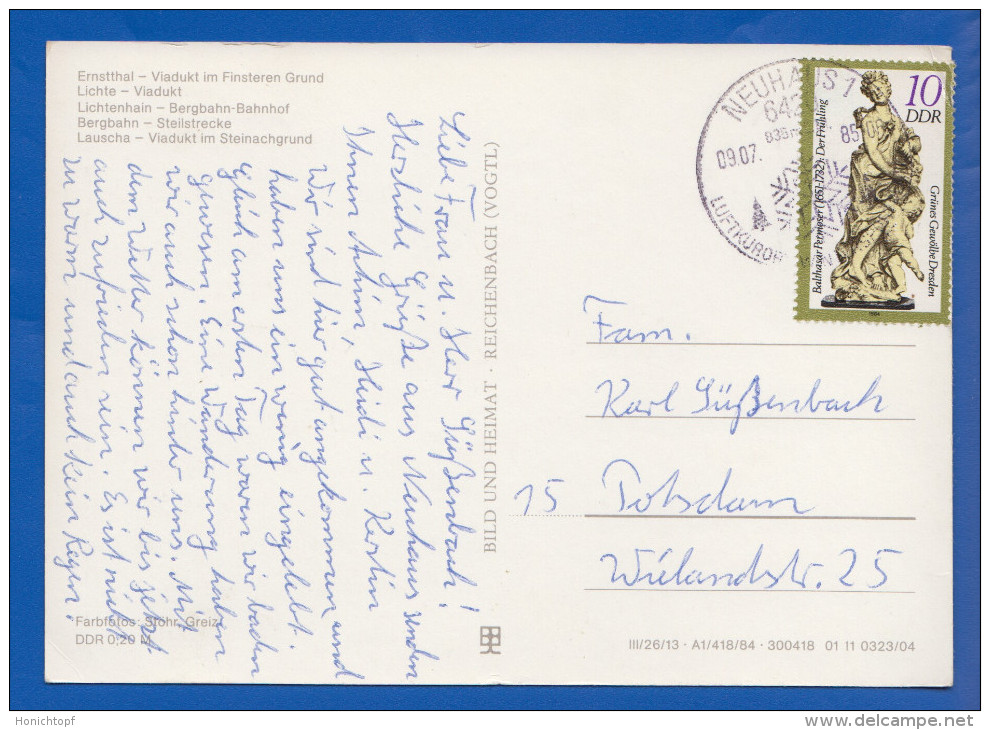 Ernstthal – Viadukt im Finsteren Grund
Lichte – Viadukt
Lichtenhain – Bergbahn-Bahnhof
Bergbahn – Steilstrecke
Lauscha – Viadukt im Steinachgrund
Liebe Frau u. Herr Süßenbach!
Herzliche Grüße aus Neuhaus senden
Ihnen Achim, Heidi u. Kerstin
Wir sind hier gut angekommen und
haben uns ein wenig eingelebt.
Gleich am ersten Tag waren wir baden
gewesen. Eine Wanderung haben
wir auch schon hinter uns. Mit
dem Wetter können wir bis jetzt
auch zufrieden sein. Es ist nicht
zu warm und auch kein Regen.
Farbfotos: Stohr, Greiz
DDR 0,20 M
BILD UND HEIMAT · REICHENBACH (VOGTL)
NEUHAUS 1
09.07.
85
LUFTKURORT
10
DDR
Balthasar Permoser (1651-1732): Der Frühling
Grünes Gewölbe Dresden
1984
Fam.
Karl Süßenbach
15 Potsdam
Wielandstr. 25
III/26/13 · A1/418/84 · 300418 01 11 0323/04
Honichtopf
http://www.delcampe.net